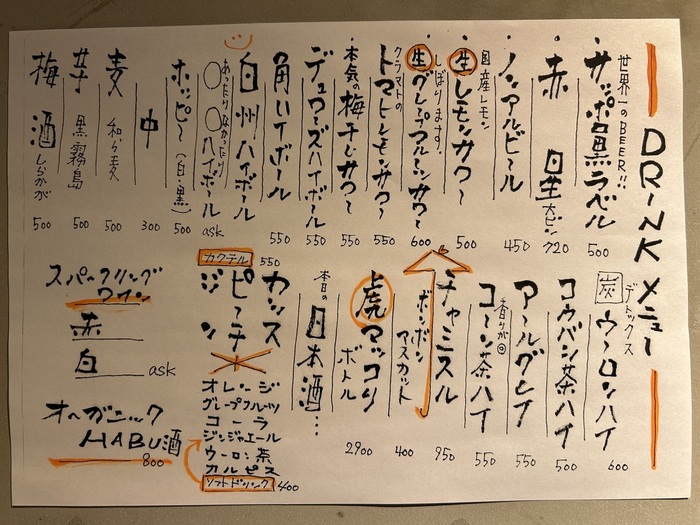 DRINK メニュー
世界一のBEER!!
サッポロ黒ラベル 500
赤星 大ビン 720
ノンアルビール 450
国産レモン
生レモンサワー 500
しぼります。
生グレープフルーツサワー 600
クラマトの
トマトレモンサワー 550
本気の梅干しサワー 550
デュワーズハイボール 550
角ハイボール 550
白州ハイボール
あったりなかったり
〇〇ハイボール ask
ホッピー(白・黒) 500
中 300
麦 和ら麦 500
芋 黒霧島 500
梅酒 しらかが 500
デトックス
炭ウーロンハイ 600
コウバシ茶ハイ 500
アールグレイ 550
香りが◎
コーン茶ハイ 550
チャミスル 950
ボンボン
マスカット 400
虎マッコリ
ボトル 2900
本日の
日本酒…
カクテル 550
カシス
ピーチ
ジン
オレンジ
グレープフルーツ
コーラ
ジンジャエール
ウーロン茶
カルピス
ソフトドリンク 400
スパークリング
ワイン
赤
白 ask
オーガニック
HABU酒
800